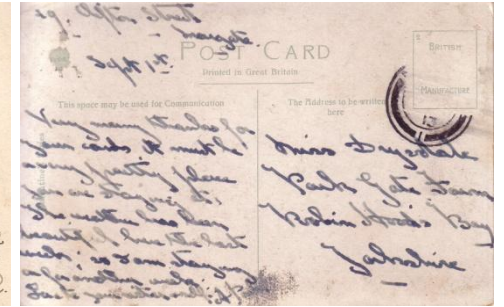 Street
Sept 1st.
POST CARD
Printed in Great Britain
BRITISH
MANUFACTURE
This space may be used for Communication
The Address to be written
here
Very many thanks for
your cards it must be
a very pretty place
you are staying at.
The weather has been
beautiful here the last
week, so I am staying
another week
Miss
Park Gate Farm
Robin Hoods Bay
Yorkshire